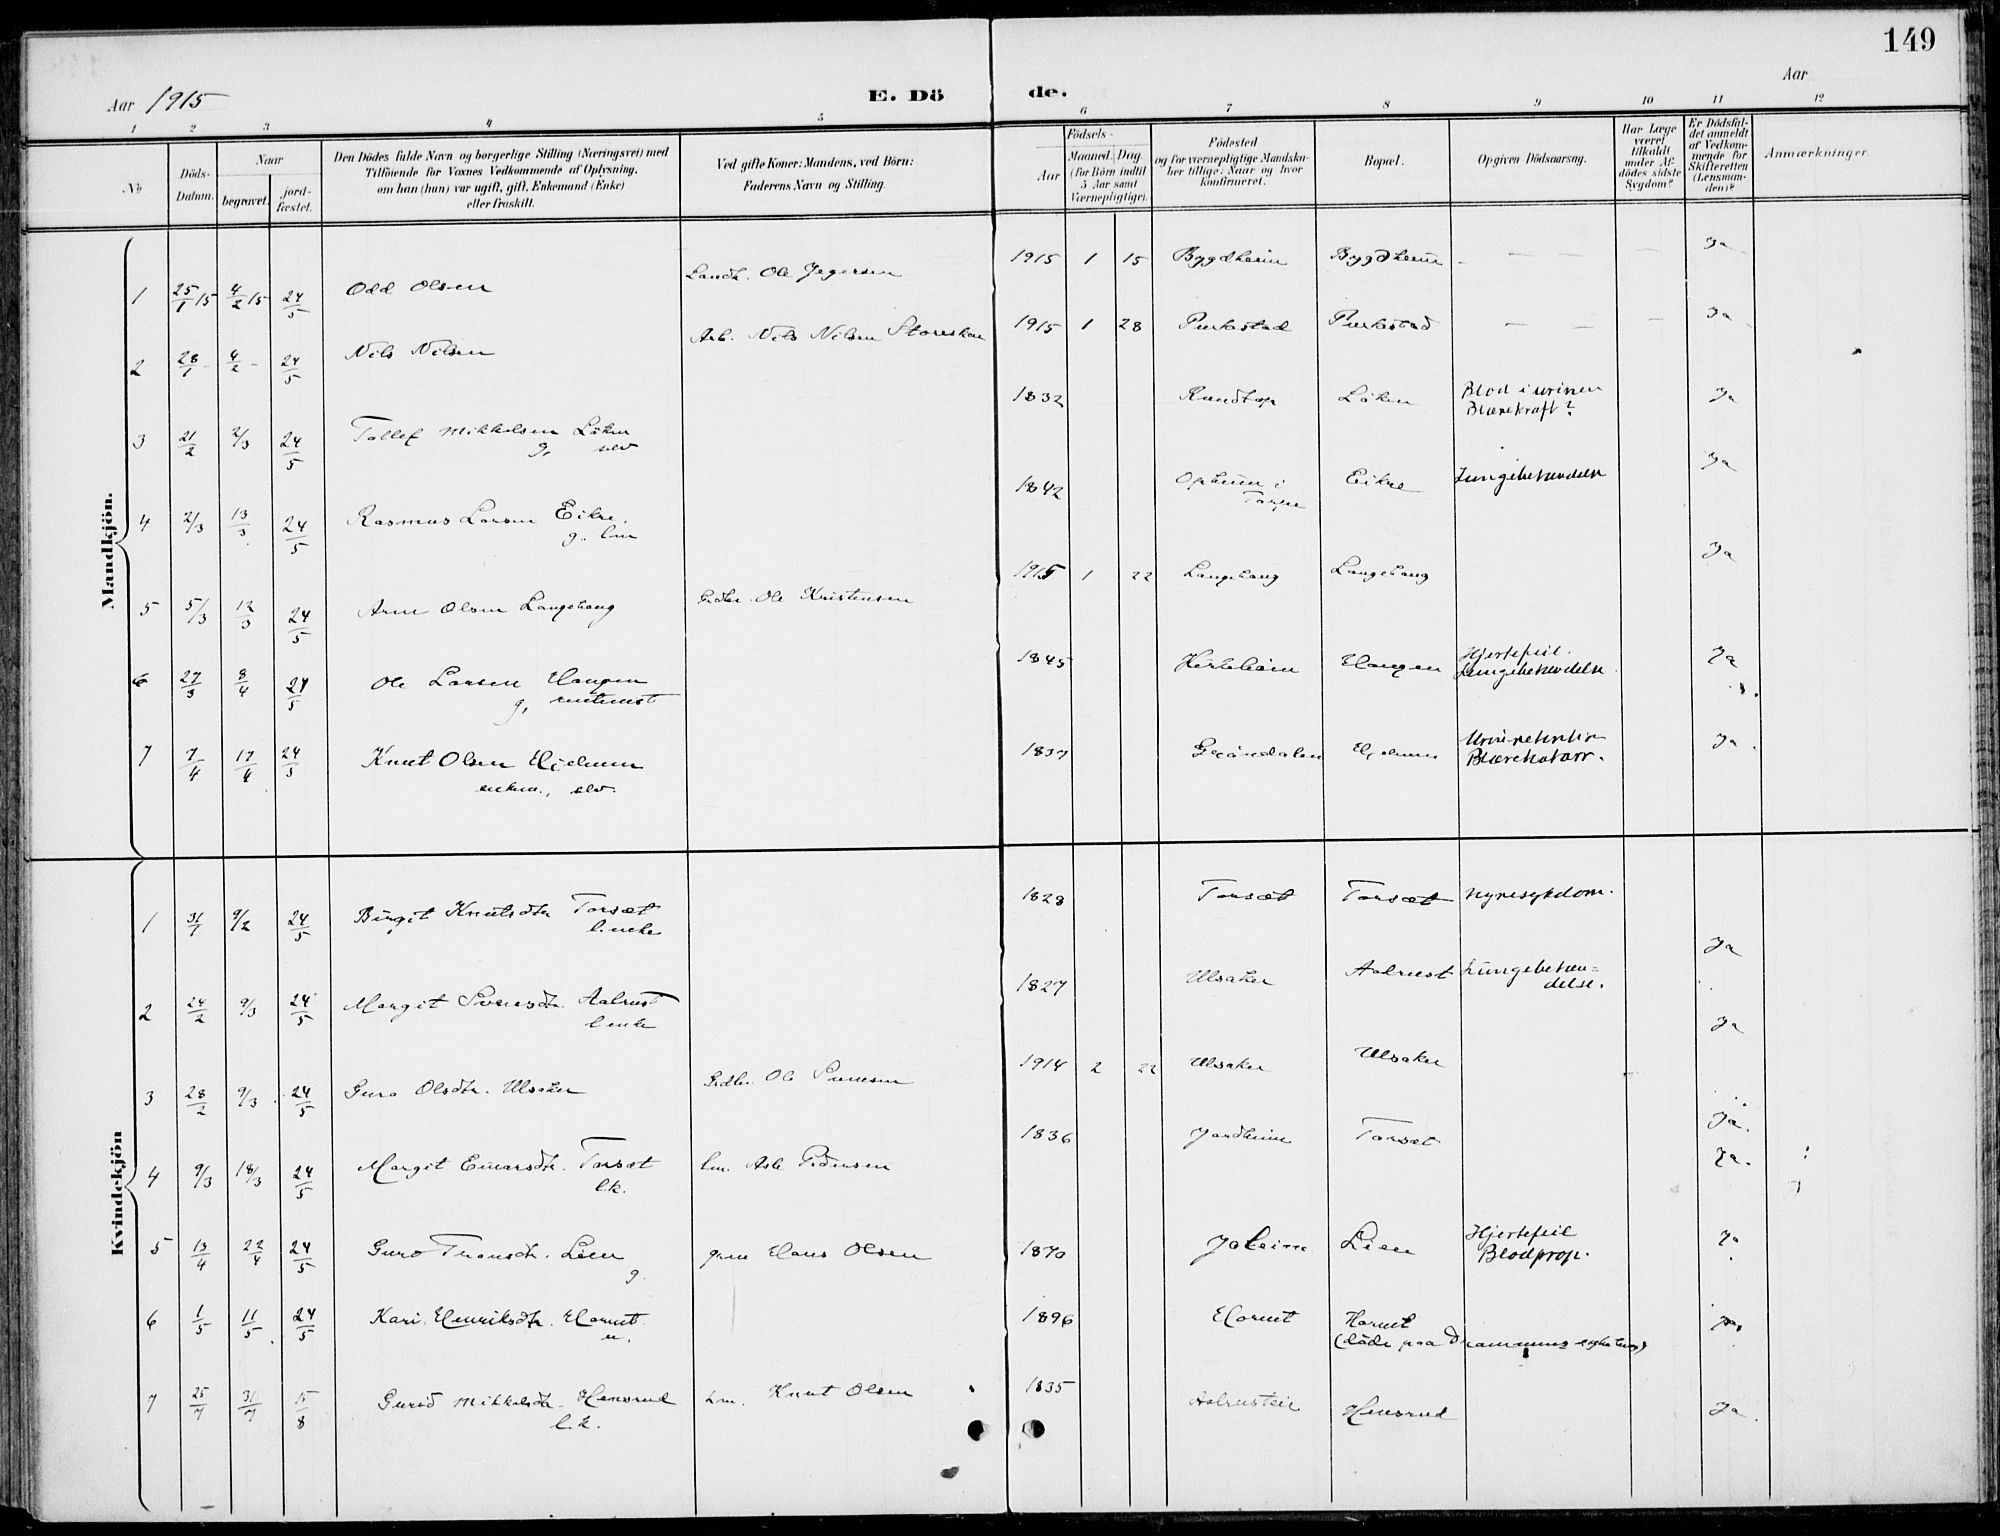 149
Aar 1915
E. Dö
de.
Aar
1 2 3 4 5 6 7 8 9 10 11 12
No
Döds-
Datum.
Naar
begravet.
jord-
fæstet.
Den Dödes fulde Navn og borgerlige Stilling (Næringsvei) med
Tilföiende for Voxnes Vedkommende af Oplysning.
om han (hun) var ugift, gift, Enkemand (Enke)
eller fraskilt.
Ved gifte Koner: Mandens, ved Börn:
Faderens Navn og Stilling.
Födsels-
Aar
Maaned. Dag.
(for Börn indtil
5 Aar samt
Værnepligtige).
Födested
og for værnepligtige Mandska-
ber tillige: Naar og hvor
konfirmeret.
Bopæl.
Opgiven Dödsaarsag.
Har Læge
været
tilkaldt
under Af-
dödes sidste
Sygdom?
Er Dödsfal-
det anmeldt
af Vedkom-
mende for
Skifteretten
(Lensman-
den)?
Anmærkninger.
Mandkjön.
1 25/1 15 4/2 15 24/5 Odd Olsen Landh. Ole 1915 1 15 Bygdheim Bygdheim - - - - Ja
2 28/1 - 4/2 - 24/5 Nils Nilsen Arb. Nils Nilsen 1915 1 28 Purkestad Purkestad - - - Ja
3 21/2 2/3 24/5 Tollef Mikkelsen Löken
g, selv
1832 Löken Blod i urinen
Blærekraft? Ja
4 2/3 13/3 24/5 Rasmus Larsen Eikre.
g. lm
1842 Opheim i
Torpe Eikre Lungebetændelse Ja
5 5/3 12/3 24/5 Arne Olsen Langehaug Grdbr. Ole Kristensen 1915 1 22 Langehaug Langehaug Ja
6 27/3 8/4 24/5 Ole Larsen Haugen
g,
1845 Haugen Hjertefeil.
Lungebetændelse Ja
7 7/4 17/4 24/5 Knut Olsen
enkm., selv.
1837 Gröndalen Urinretention
Blærekatarr. Ja.
Kvindekjön
1 31/1 9/2 24/5 Birgit Knutsdtr Torsæt
l. enke
1828 Torsæt Torsæt Nyresykdom. Ja
2 24/2 9/3 24/5 Margit Aalrust
l enke
1827 Ulsaker Aalrust Lungebetæn=
delse. Ja
3 28/2 9/3 24/5 Guro Olsdtr. Ulsaker Grdbr. Ole 1914 2 22 Ulsaker Ulsaker Ja.
4 9/3 18/3 24/5 Margit Torsæt
l.k.
lm. Asle Pedersen 1836 Jordheim Torsæt Ja.
5 13/4 22/4 24/5 Guro Lien
g.
Hans Olsen 1870 Lien Hjertefeil
Blodprop. Ja
6 1/5 11/5 24/5 Kari Henriksdtr.
u.
1896
(döde paa Drammens sykehus)
7 25/7 31/7 15/8 Gurid Mikkelsdtr.
l.k.
lm. Knut Olsen 1835 Ja.